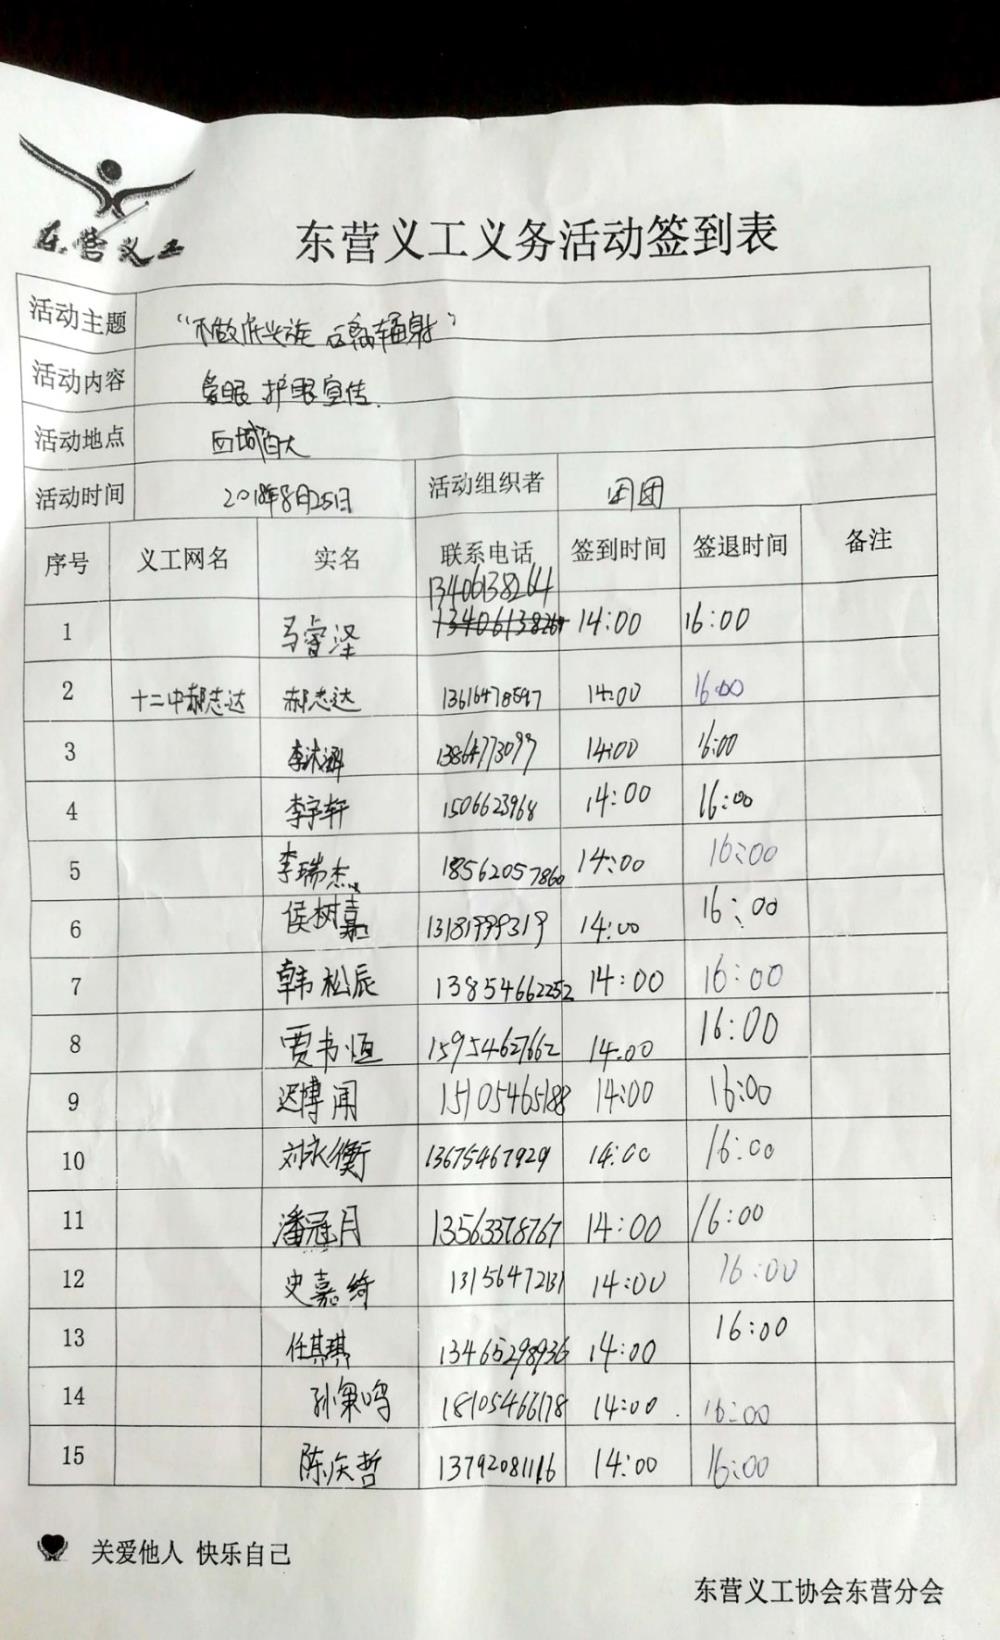 东营义工
东营义工义务活动签到表
活动主题 “不做低头族 远离辐射”
活动内容 爱眼 护眼宣传.
活动地点 西城百大
活动时间 2018年8月25日 活动组织者 团团
序号 义工网名 实名 联系电话 签到时间 签退时间 备注
13406138264
1 马睿泽 14:00 16:00
2 十二中郝志达 郝志达 13616478597 14:00 16:00
3 李沐涵 1386477309 14:00 16:00
4 李宇轩 1506623968 14:00 16:00
5 李瑞杰 18562057860 14:00 16:00
6 侯树嘉 13181999319 14:00 16:00
7 韩松辰 13854662252 14:00 16:00
8 贾书恒 15954627662 14:00 16:00
9 迟博闻 15105465188 14:00 16:00
10 刘永衡 13675467929 14:00 16:00
11 潘冠月 13563378767 14:00 16:00
12 史嘉绮 13156472131 14:00 16:00
13 任其琪 13465298936 14:00 16:00
14 孙 鸣 18105466178 14:00 16:00
15 陈庆哲 13792081116 14:00 16:00
关爱他人 快乐自己
东营义工协会东营分会